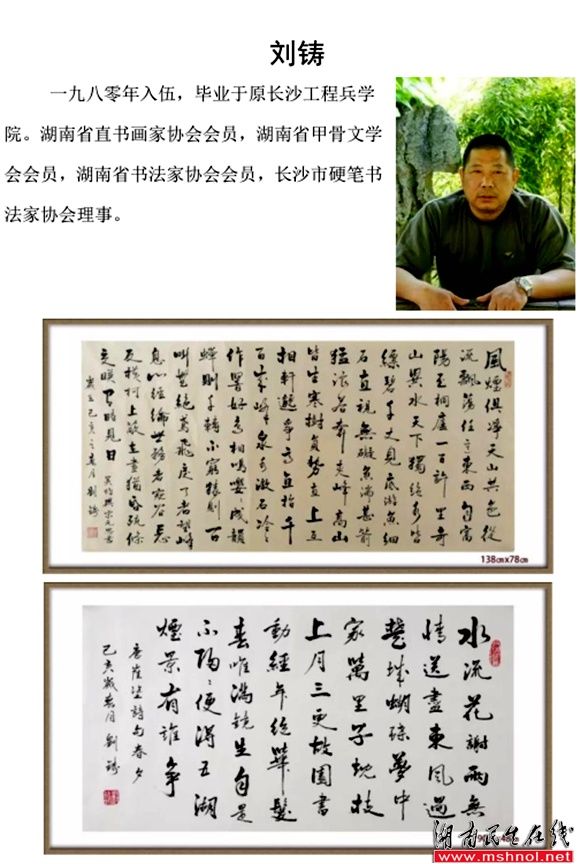 刘铸
一九八零年入伍，毕业于原长沙工程兵学
院。湖南省直书画家协会会员，湖南省甲骨文学
会会员，湖南省书法家协会会员，长沙市硬笔书
法家协会理事。
風煙俱淨天山共色從
流飄蕩任意東西自富
陽至桐廬一百許里奇
山異水天下獨絕水皆
縹碧千丈見底游魚細
石直視無礙急湍甚箭
猛浪若奔夾峰高山
皆生寒樹負勢直上互
相軒邈爭高直指千
百成峰泉水激石泠
作響好鳥相鳴嚶成韻
蟬則千轉不窮猿則百
叫無絕鳶飛戾天者望峰
息心經綸世務者窺谷忘
反橫柯上蔽在晝猶昏疏條
交映有時見日 吳均與宋元思書
歲在己亥之春月劉鑄
138cm×78cm
水流花謝兩無
情送盡東風過
楚城蝴蝶夢中
家萬里子規枝
上月三更故園書
動經年絕華髮
春唯滿鏡生自是
不歸歸便得五湖
煙景有誰爭
唐崔塗詩句春夕
己亥歲春月劉鑄
湖南民生在线
www.mshnol.net